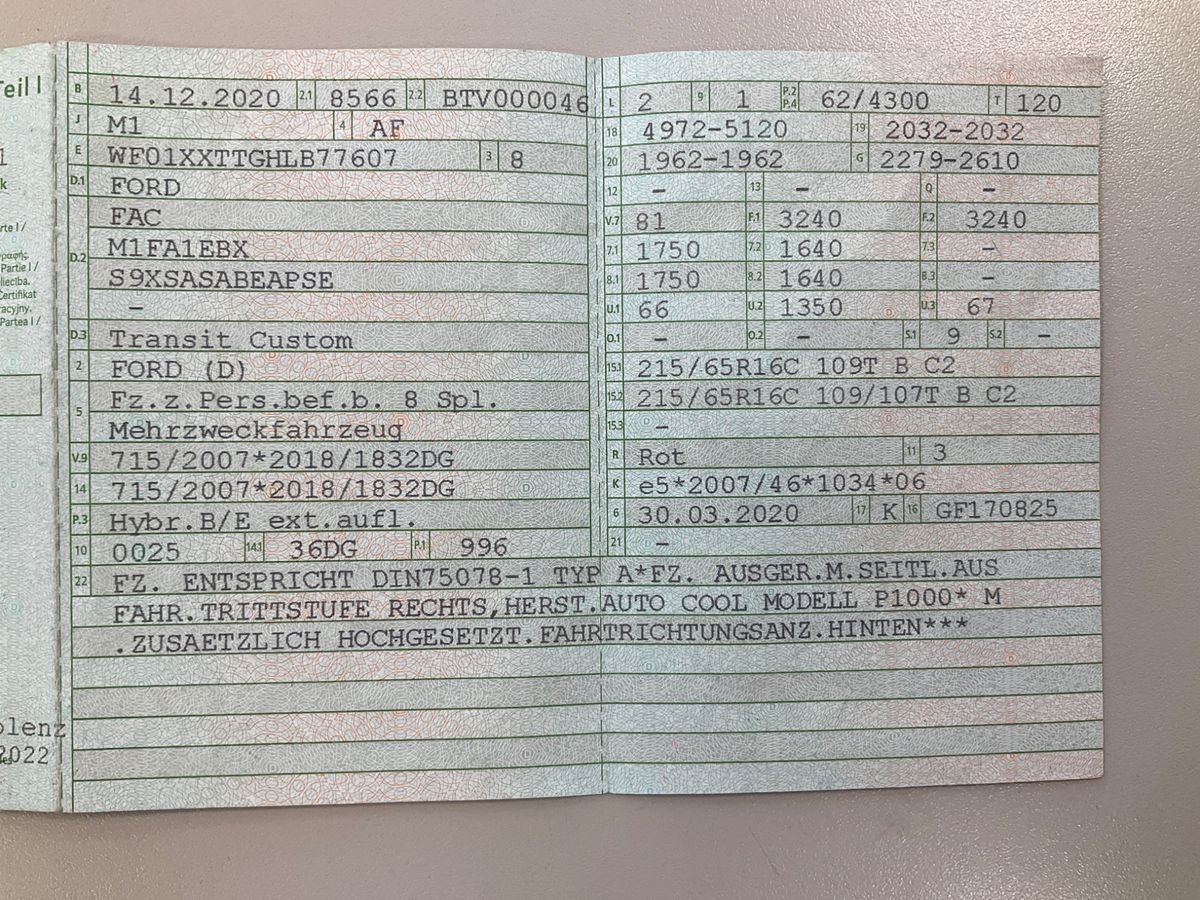 Teil I
B 14.12.2020 2.1 8566 2.2 BTV000046
J M1 4 AF
E WF01XXTTGHLB77607 3 8
D.1 FORD
D.2 FAC
M1FA1EBX
S9XSASABEAPSE
–
D.3 Transit Custom
2 FORD (D)
5 Fz.z.Pers.bef.b. 8 Spl.
Mehrzweckfahrzeug
V.9 715/2007*2018/1832DG
14 715/2007*2018/1832DG
P.3 Hybr.B/E ext.aufl.
10 0025 14.1 36DG P.1 996
L 2 9 1 P.2 P.4 62/4300 T 120
18 4972-5120 19 2032-2032
20 1962-1962 G 2279-2610
12 – 13 – Q –
V.7 81 F.1 3240 F.2 3240
7.1 1750 7.2 1640 7.3 –
8.1 1750 8.2 1640 8.3 –
U.1 66 U.2 1350 U.3 67
O.1 – O.2 – S.1 9 S.2 –
15.1 215/65R16C 109T B C2
15.2 215/65R16C 109/107T B C2
15.3 –
R Rot 11 3
K e5*2007/46*1034*06
6 30.03.2020 17 K 16 GF170825
21 –
22 FZ. ENTSPRICHT DIN75078-1 TYP A*FZ. AUSGER.M.SEITL.AUS
FAHR.TRITTSTUFE RECHTS,HERST.AUTO COOL MODELL P1000* M
.ZUSAETZLICH HOCHGESETZT.FAHRTRICHTUNGSANZ.HINTEN***
Partie I /
Certifikat
Partea I /
olenz
2022